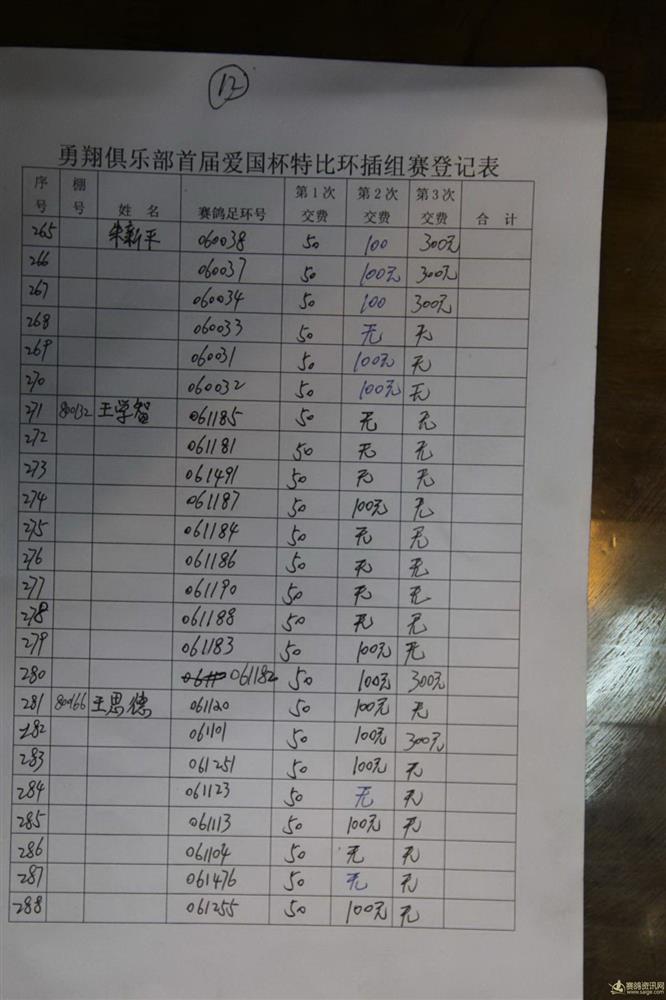 12
勇翔俱乐部首届爱国杯特比环插组赛登记表
序号 棚号 姓名 赛鸽足环号 第1次交费 第2次交费 第3次交费 合计
265 朱新平 060038 50 100 300元
266 060037 50 100元 300元
267 060034 50 100 300元
268 060033 50 无 无
269 060031 50 100元 无
270 060032 50 100元 无
271 80132 王学智 061185 50 无 无
272 061181 50 无 无
273 061491 50 无 无
274 061187 50 100元 无
275 061184 50 无 无
276 061186 50 无 无
277 061190 50 无 无
278 061188 50 无 无
279 061183 50 100元 无
280 061182 50 100元 300元
281 80166 王思德 061120 50 100元 无
282 061101 50 100元 300元
283 061251 50 100元 无
284 061123 50 无 无
285 061113 50 100元 无
286 061104 50 无 无
287 061476 50 无 无
288 061255 50 100元 无
赛鸽资讯网
www.saige.com